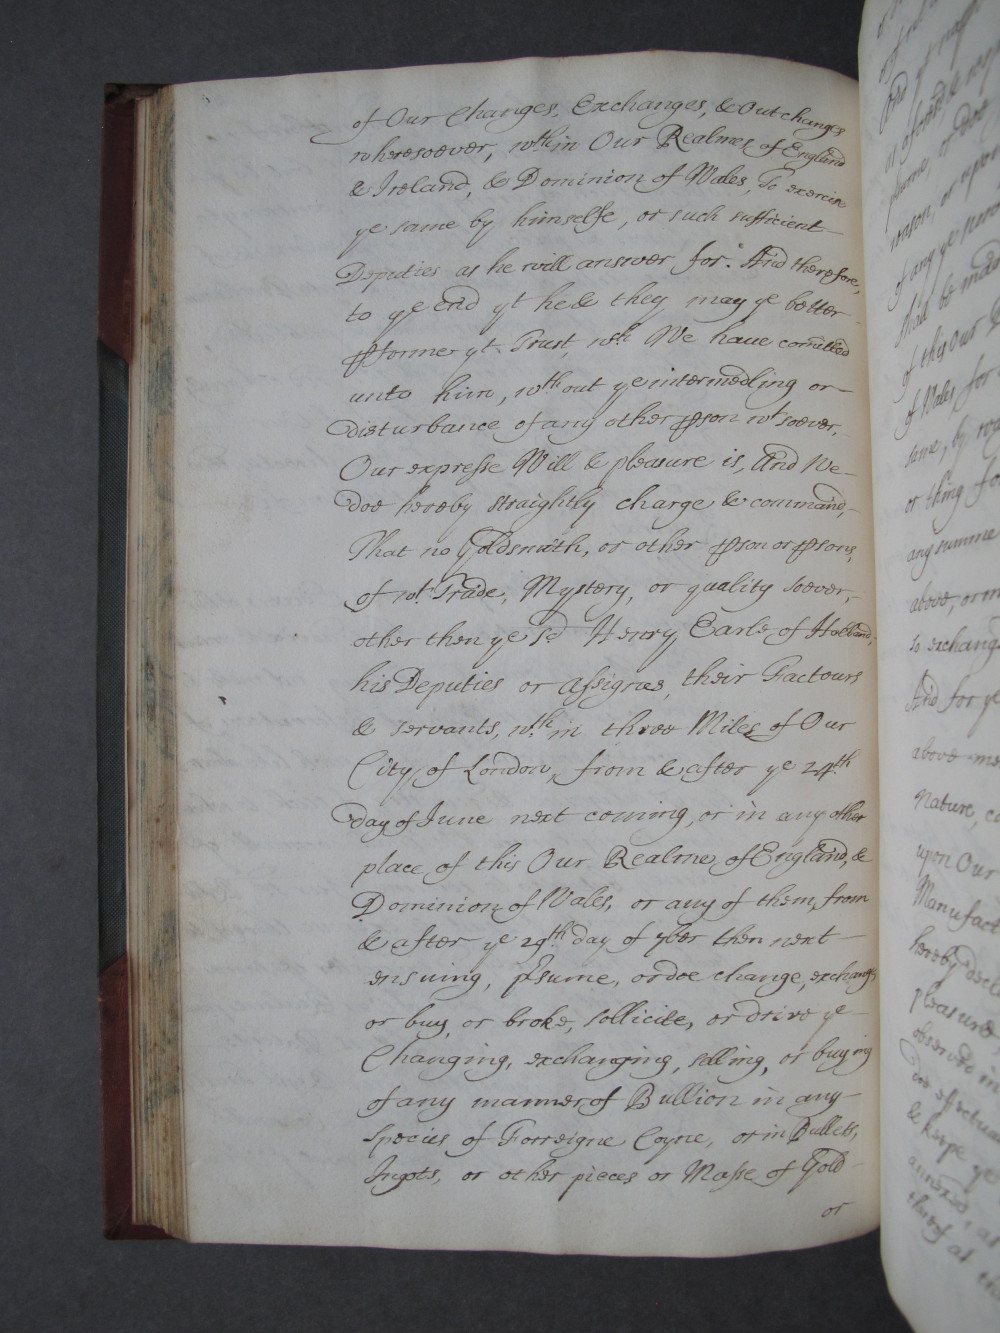 of Our Changes, Exchanges, & Outchanges
wheresoever, wthin Our Realmes of England
& Ireland, & Dominion of Wales, To exercise
ye same by himselfe, or such sufficient
Deputies as he will answer for. And therefore,
to ye end yt he & they may ye better
pforme yt Trust, wch We have comitted
unto him, wthout ye intermedling or
disturbance of any other pson wt soever,
Our expresse Will & pleasure is, And We
doe hereby straightly charge & command,
That no Goldsmith, or other pson or psons,
of wt Trade, Mystery, or quality soever,
other then ye sd Henry Earle of Holland,
his Deputies or Assignes, their Factours
& servants, wthin three Miles of Our
City of London, from & after ye 24th
day of June next coming, or in any other
place of this Our Realme of England, &
Dominion of Wales, or any of them, from
& after ye 29th day of 7ber then next
ensuing, psume, or doe change, exchange
or buy, or broke, sollicite, or drive ye
Changing, exchanging, selling, or buying
of any manner of Bullion in any
species of Forreigne Coyne, or in Bullets,
Ingots, or other pieces or Masse of Gold
or
above, or
so exchang
And for ye
above-me
Nature, c
upon Our
Manufact
hereby decl
pleasure
observed in
doe effectua
& keepe ye
annexed, as
therof at th